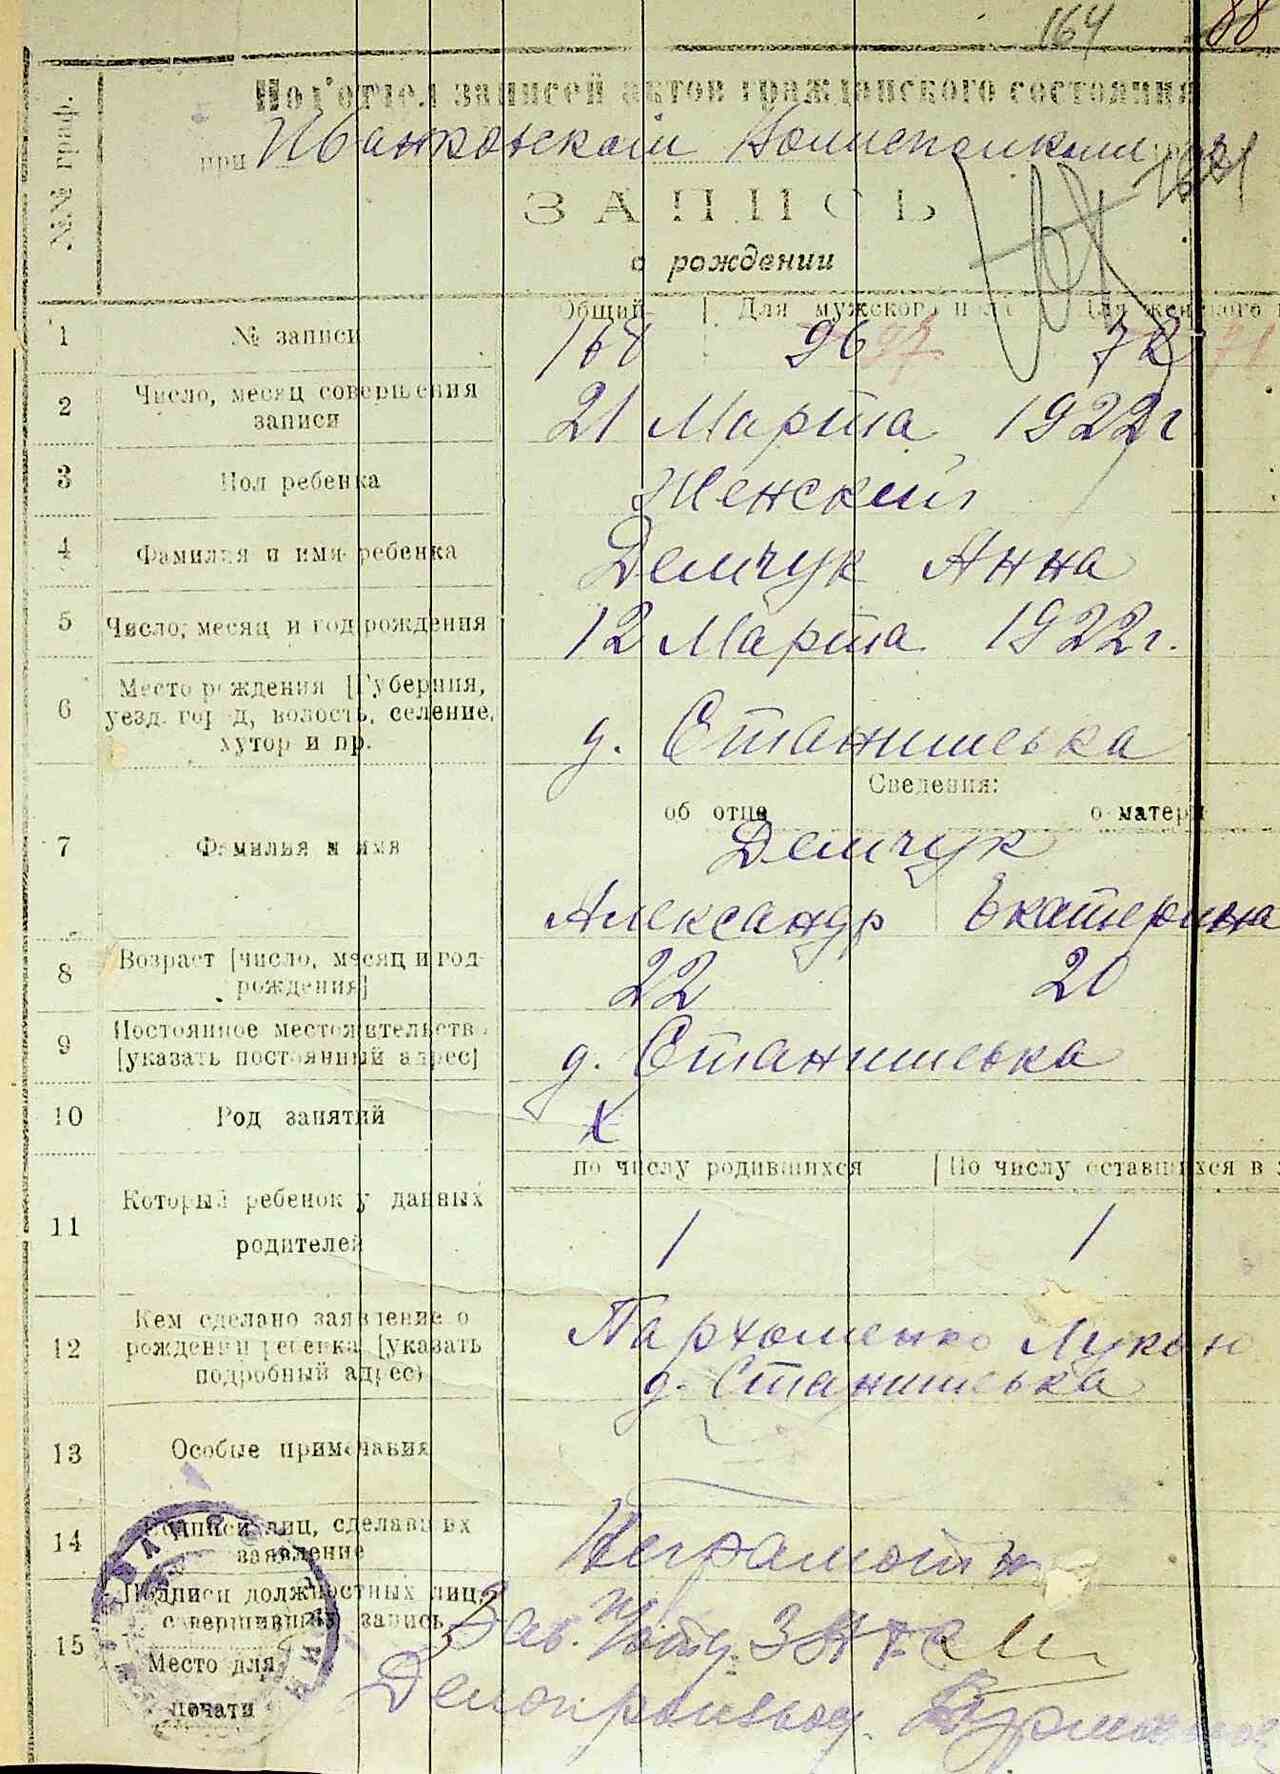 164 88
Под'отдел записей актов гражданского состояния
при Иванковском Волисполкоме
№№ граф.
ЗАПИСЬ
о рождении
Общий Для мужского пола Для женского
1 № записи 168 96 97 72 71
2 Число, месяц совершения
записи
21 Марта 1922 г
3 Пол ребенка Женский
4 Фамилия и имя ребенка Демчук Анна
5 Число, месяц и год рождения 12 Марта 1922 г.
6 Место рождения [Губерния,
уезд, город, волость, селение,
хутор и пр.
д. Станишевка
Сведения:
об отце о матери
7 Фамилия и имя Демчук
Александр Екатерина
8 Возраст [число, месяц и год
рождения]
22 20
9 Постоянное местожительство
[указать постоянный адрес]
д. Станишевка
10 Род занятий х
по числу родившихся По числу оставшихся в
11 Который ребенок у данных
родителей
1 1
12 Кем сделано заявление о
рождении ребенка [указать
подробный адрес)
Пархоменко Лукян
д. Станишевка
13 Особые примечания
14 Подписи лиц, сделавших
заявление
Неграмотн
15 Подписи должностных лиц,
совершивших запись
Место для
печати
Зав.
Делопроизвод.